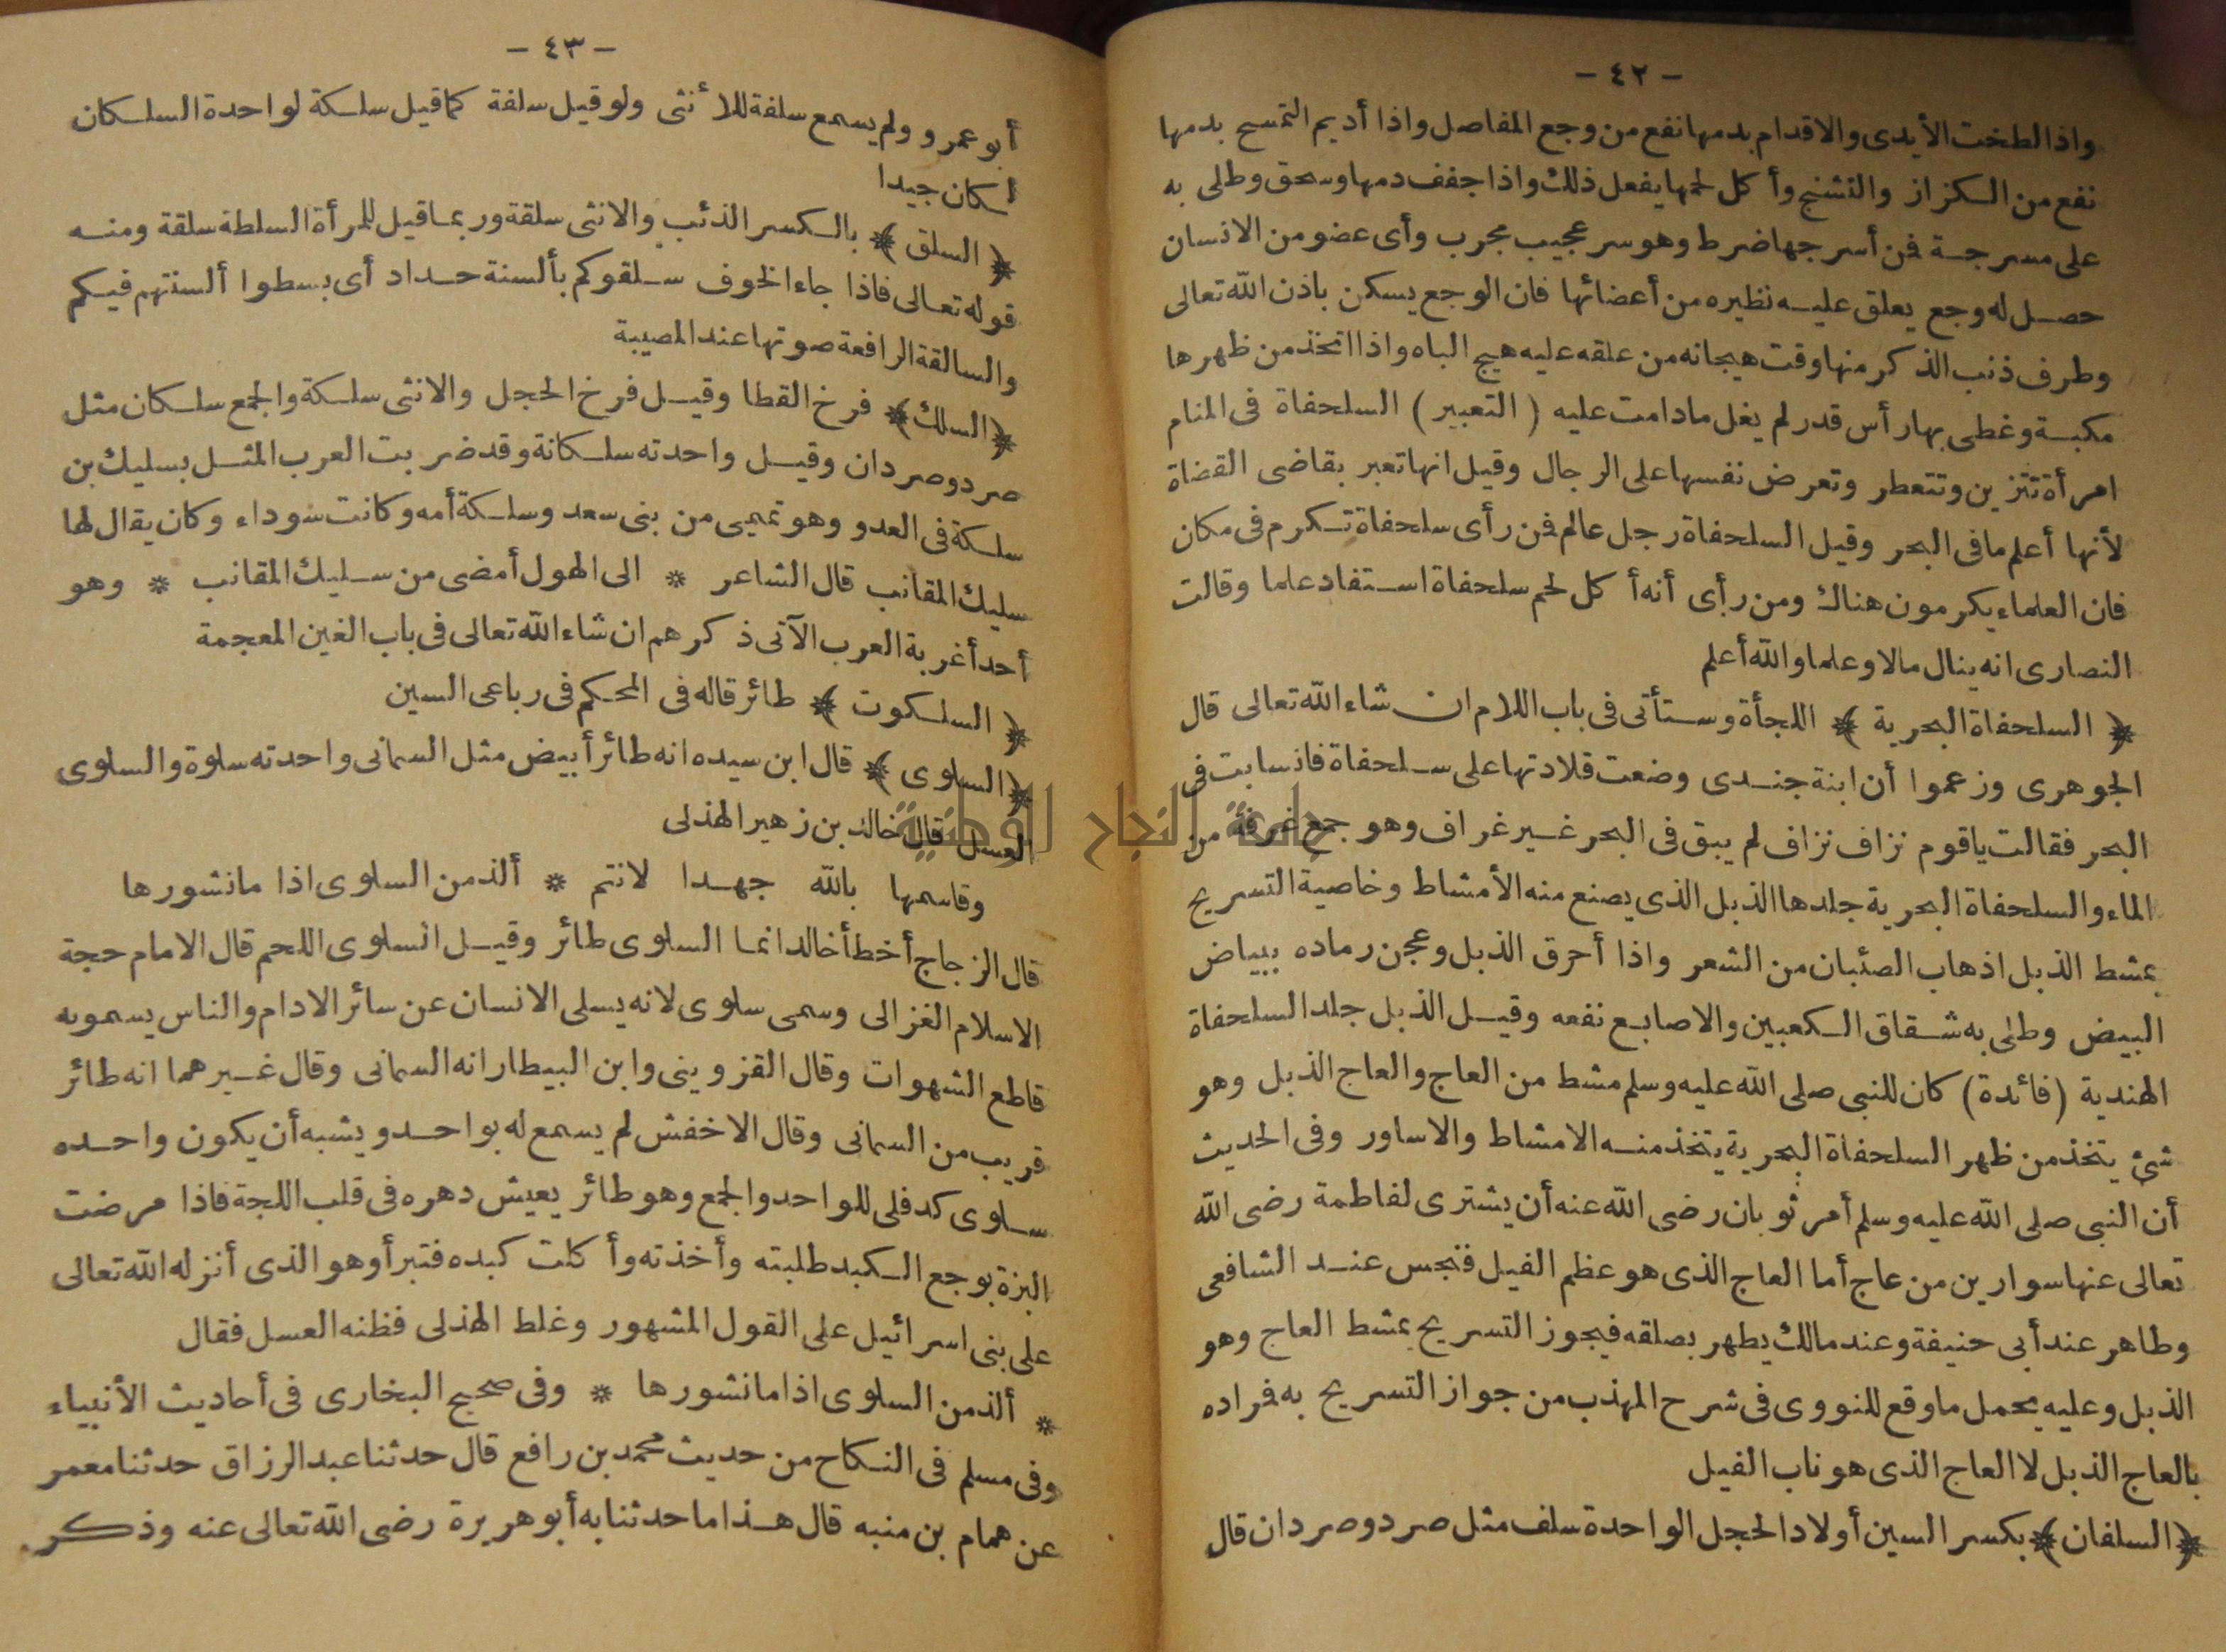 - ٤٢ -
واذا لطخت الأيدى والاقدام بدمها نفع من وجع المفاصل واذا أديم التمسح بدمها
نفع من الكزاز والتشنج وأكل لحمها يفعل ذلك واذا جفف دمها وسحق وطلى به
على مسرجة فمن أسرجها ضرط وهو سر عجيب مجرب وأى عضو من الانسان
حصل له وجع يعلق عليه نظيره من أعضائها فان الوجع يسكن باذن الله تعالى
وطرف ذنب الذكر منها وقت هيجانه من علقه عليه هيج الباه واذا اتخذ من ظهرها
مكبة وغطى بها رأس قدر لم يغل مادامت عليه (التعبير) السلحفاة فى المنام
امرأة تتزين وتتعطر وتعرض نفسها على الرجال وقيل انها تعبر بقاضى القضاة
لأنها أعلم ما فى البحر وقيل السلحفاة رجل عالم فمن رأى سلحفاة تكرم فى مكان
فان العلماء يكرمون هناك ومن رأى أنه أكل لحم سلحفاة استفاد علما وقالت
النصارى انه ينال مالا وعلما والله أعلم
﴿السلحفاة البحرية﴾ اللجأة وستأتى فى باب اللام ان شاء الله تعالى قال
الجوهرى وزعموا أن ابنة جندى وضعت قلادتها على سلحفاة فانسابت فى
البحر فقالت يا قوم نزاف نزاف لم يبق فى البحر غير غراف وهو جمع غرفة من
الماء والسلحفاة البحرية جلدها الذبل الذى يصنع منه الأمشاط وخاصية التسريح
بمشط الذبل اذهاب الصئبان من الشعر واذا أحرق الذبل وعجن رماده ببياض
البيض وطلى به شقاق الكعبين والاصابع نفعه وقيل الذبل جلد السلحفاة
الهندية (فائدة) كان للنبى صلى الله عليه وسلم مشط من العاج والعاج الذبل وهو
شئ يتخذ من ظهر السلحفاة البحرية يتخذ منه الامشاط والاساور وفى الحديث
أن النبى صلى الله عليه وسلم أمر ثوبان رضى الله عنه أن يشترى لفاطمة رضى الله
تعالى عنها سوارين من عاج أما العاج الذى هو عظم الفيل فنجس عند الشافعى
وطاهر عند أبى حنيفة وعند مالك يطهر بصلقه فيجوز التسريح بمشط العاج وهو
الذبل وعليه يحمل ما وقع للنووى فى شرح المهذب من جواز التسريح به فمراده
بالعاج الذبل لا العاج الذى هو ناب الفيل
﴿السلفان﴾ بكسر السين أولاد الحجل الواحدة سلف مثل صرد وصردان قال
- ٤٣ -
أبو عمرو ولم يسمع سلفة للأنثى ولو قيل سلفة كما قيل سلكة لواحدة السلكان
لكان جيدا
﴿السلق﴾ بالكسر الذئب والانثى سلقة وربما قيل للمرأة السلطة سلقة ومنه
قوله تعالى فاذا جاء الخوف سلقوكم بألسنة حداد أى بسطوا ألسنتهم فيكم
والسالقة الرافعة صوتها عند المصيبة
﴿السلك﴾ فرخ القطا وقيل فرخ الحجل والانثى سلكة والجمع سلكان مثل
صرد وصردان وقيل واحدته سلكانة وقد ضربت العرب المثل بسليك بن
سلكة فى العدو وهو تميمى من بنى سعد وسلكة أمه وكانت سوداء وكان يقال لها
سليك المقانب قال الشاعر * الى الهول أمضى من سليك المقانب * وهو
أحد أغربة العرب الآتى ذكرهم ان شاء الله تعالى فى باب الغين المعجمة
﴿السلكوت﴾ طائر قاله فى المحكم فى رباعى السين
﴿السلوى﴾ قال ابن سيده انه طائر أبيض مثل السمانى واحدته سلوة والسلوى
العسل قال خالد بن زهير الهذلى
وقاسمها بالله جهدا لانتم * ألذ من السلوى اذا ما نشورها
قال الزجاج أخطأ خالد انما السلوى طائر وقيل السلوى اللحم قال الامام حجة
الاسلام الغزالى وسمى سلوى لانه يسلى الانسان عن سائر الادام والناس يسمونه
قاطع الشهوات وقال القزوينى وابن البيطار انه السمانى وقال غيرهما انه طائر
قريب من السمانى وقال الاخفش لم يسمع له بواحد ويشبه أن يكون واحده
سلوى كدفلى للواحد والجمع وهو طائر يعيش دهره فى قلب اللجة فاذا مرضت
البزة بوجع الكبد طلبته وأخذته وأكلت كبده فتبرأ وهو الذى أنزله الله تعالى
على بنى اسرائيل على القول المشهور وغلط الهذلى فظنه العسل فقال
* ألذ من السلوى اذا ما نشورها * وفى صحيح البخارى فى أحاديث الأنبياء
وفى مسلم فى النكاح من حديث محمد بن رافع قال حدثنا عبد الرزاق حدثنا معمر
عن همام بن منبه قال هذا ما حدثنا به أبو هريرة رضى الله تعالى عنه وذكر
جامعة النجاح الوطنية